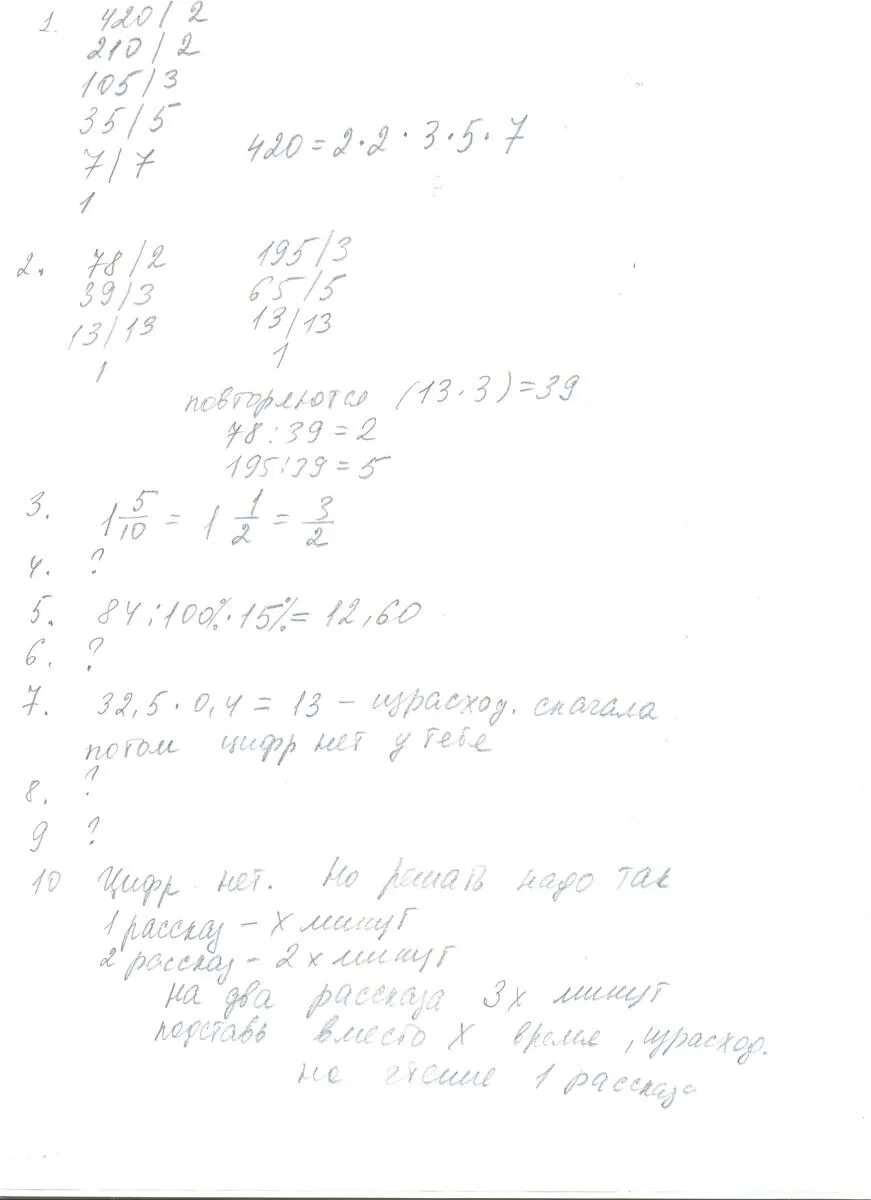 1. 420 | 2
210 | 2
105 | 3
35 | 5
7 | 7
1
420 = 2 · 2 · 3 · 5 · 7
2. 78 | 2
39 | 3
13 | 13
1
195 | 3
65 | 5
13 | 13
1
повторяются (13 · 3) = 39
78 : 39 = 2
195 : 39 = 5
3. 1 5/10 = 1 1/2 = 3/2
4. ?
5. 84 : 100% · 15% = 12,60
6. ?
7. 32,5 · 0,4 = 13 – израсход. сначала
потом цифр нет у тебя
8. ?
9 ?
10 Цифр нет. Но решать надо так
1 рассказ – x минут
2 рассказ – 2x минут
на два рассказа 3x минут
подставь вместо x время, израсход.
на чтение 1 рассказа